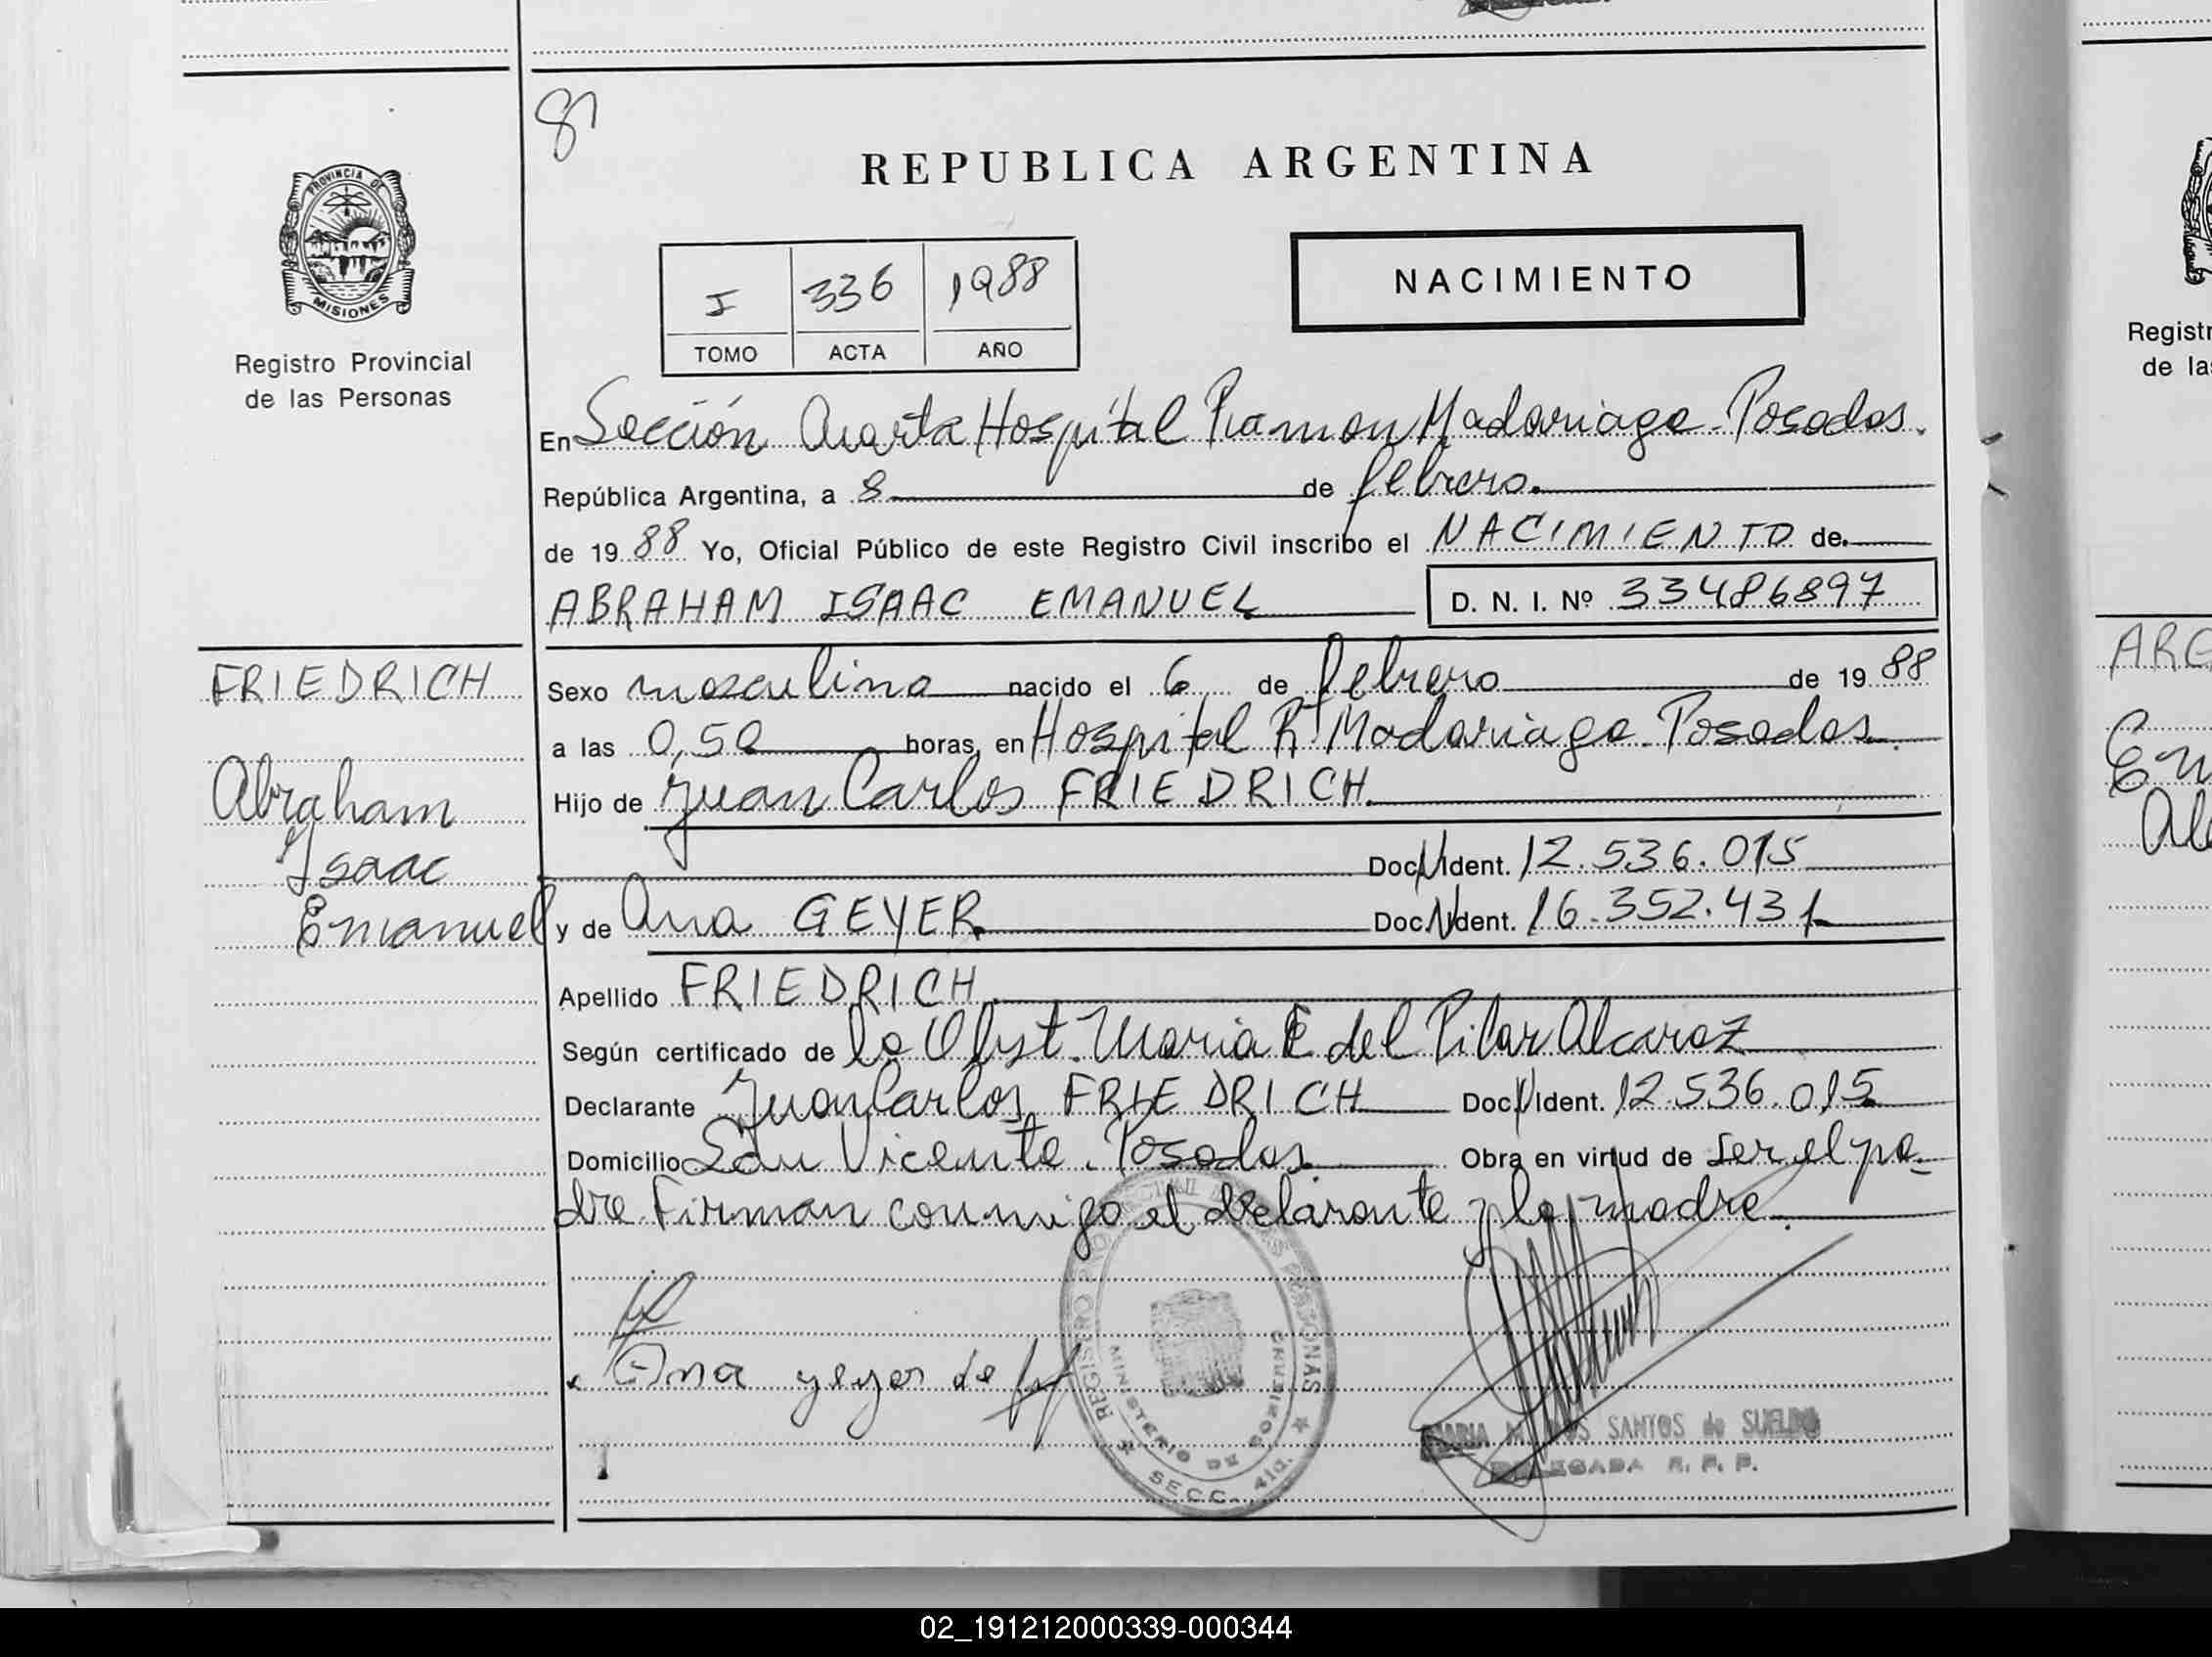 REPUBLICA ARGENTINA
PROVINCIA DE
MISIONES
Registro Provincial
de las Personas
I 336 1988
TOMO ACTA AÑO
NACIMIENTO
En Sección Cuarta Hospital Ramon Madariaga - Posadas.
República Argentina, a 8 de febrero.
de 19 88 Yo, Oficial Público de este Registro Civil inscribo el NACIMIENTO de
ABRAHAM ISAAC EMANUEL D. N. I. Nº 33486897
FRIEDRICH
Abraham
Isaac
Emanuel
Sexo masculino nacido el 6 de febrero de 19 88
a las 0,50 horas, en Hospital R. Madariaga - Posadas.
Hijo de Juan Carlos FRIEDRICH
Doc. Ident. 12.536.015
y de Ana GEYER Doc. Ident. 16.352.431
Apellido FRIEDRICH
Según certificado de la Obst. Maria E del Pilar Alcaraz
Declarante Juan Carlos FRIEDRICH Doc. Ident. 12.536.015
Domicilio San Vicente. Posadas. Obra en virtud de ser el pa-
dre Firman conmigo el declarante y la madre.
Ana geyer de
REGISTRO PROVINCIAL DE LAS PERSONAS
MINISTERIO DE GOBIERNO
SECC. 4ta.
MARIA M. DOS SANTOS de SUELDO
DELEGADA R. P. P.
Registr
de las
ARG
02_191212000339-000344